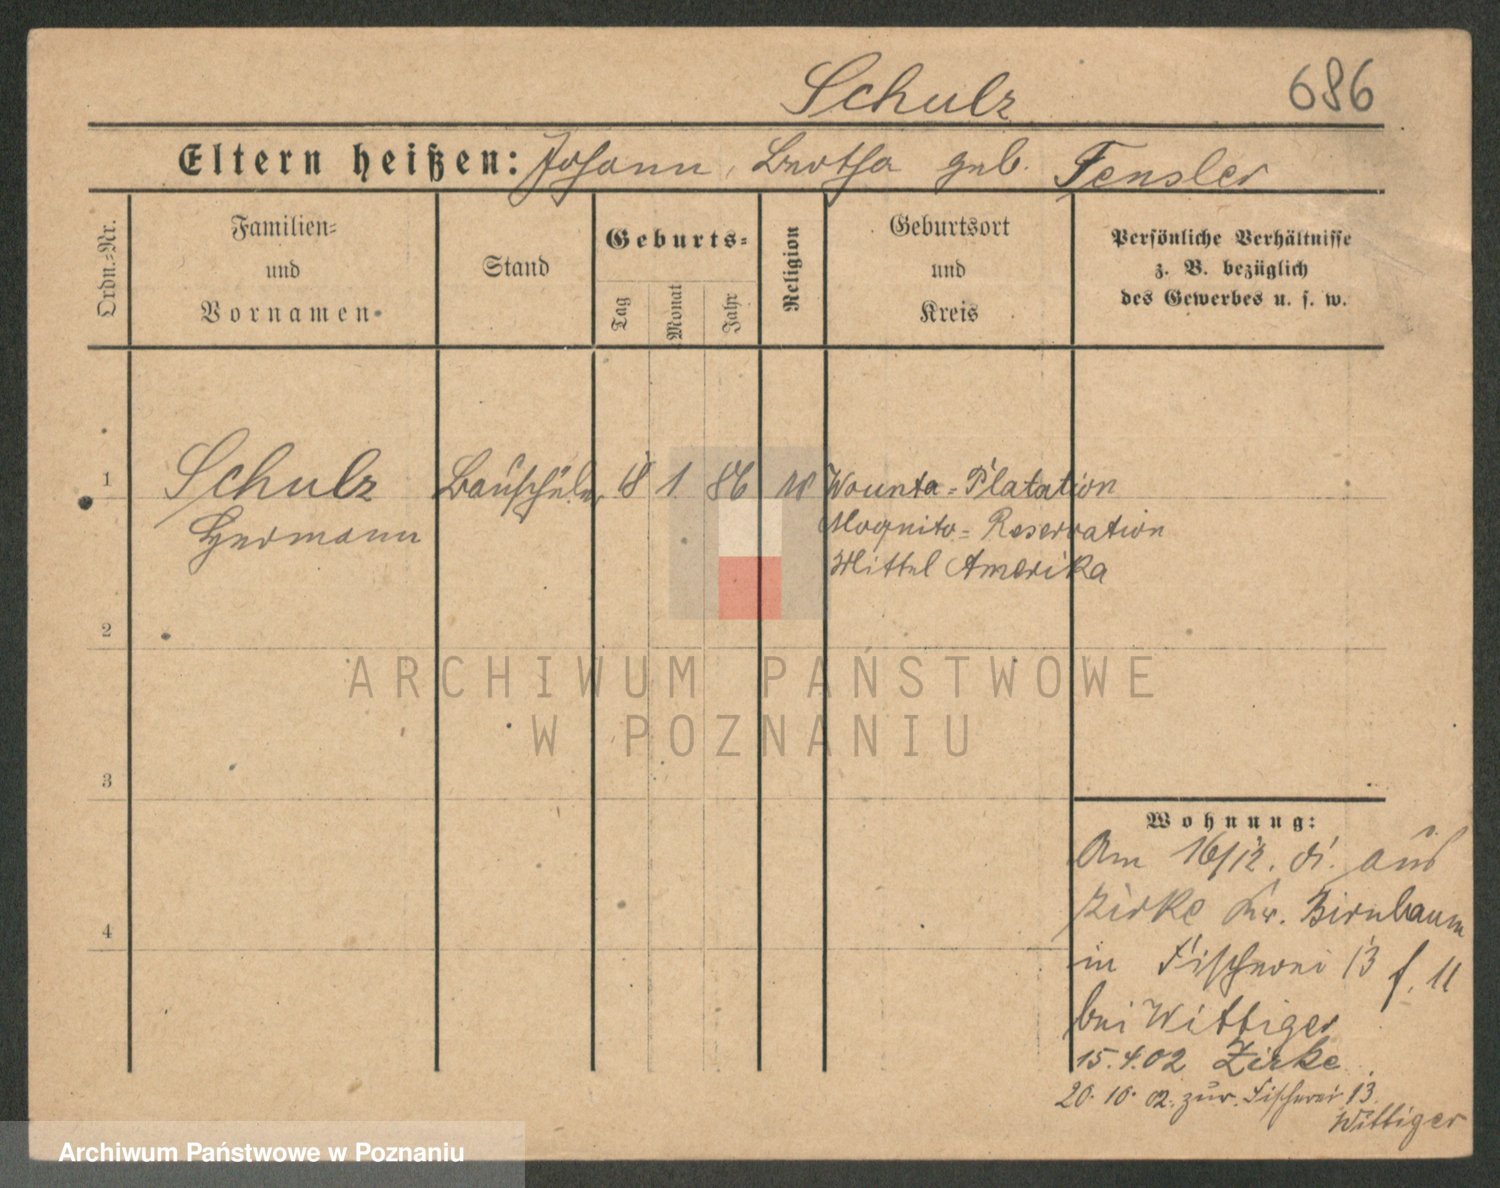 Schulz 686
Eltern heißen: Johann, Bertha geb. Fensler
Ordn.-Nr.
Familien-
und
Vornamen
Stand
Geburts-
Tag Monat Jahr
Religion
Geburtsort
und
Kreis
Persönliche Verhältnisse
z. B. bezüglich
des Gewerbes u. s. w.
1 Schulz Bauschüler 18 1 86 Wounta-Platation
Hermann Moqnito-Reservation
Mittel Amerika
2
3
4
Wohnung:
Am 16/12. aus
Zirke Kr. Birnbaum
in Fischerei 13 f. 11
bei Wittiger
15.4.02 Zirke
20.10.02. zur. Fischerei 13
Wittiger
ARCHIWUM PAŃSTWOWE
W POZNANIU
Archiwum Państwowe w Poznaniu